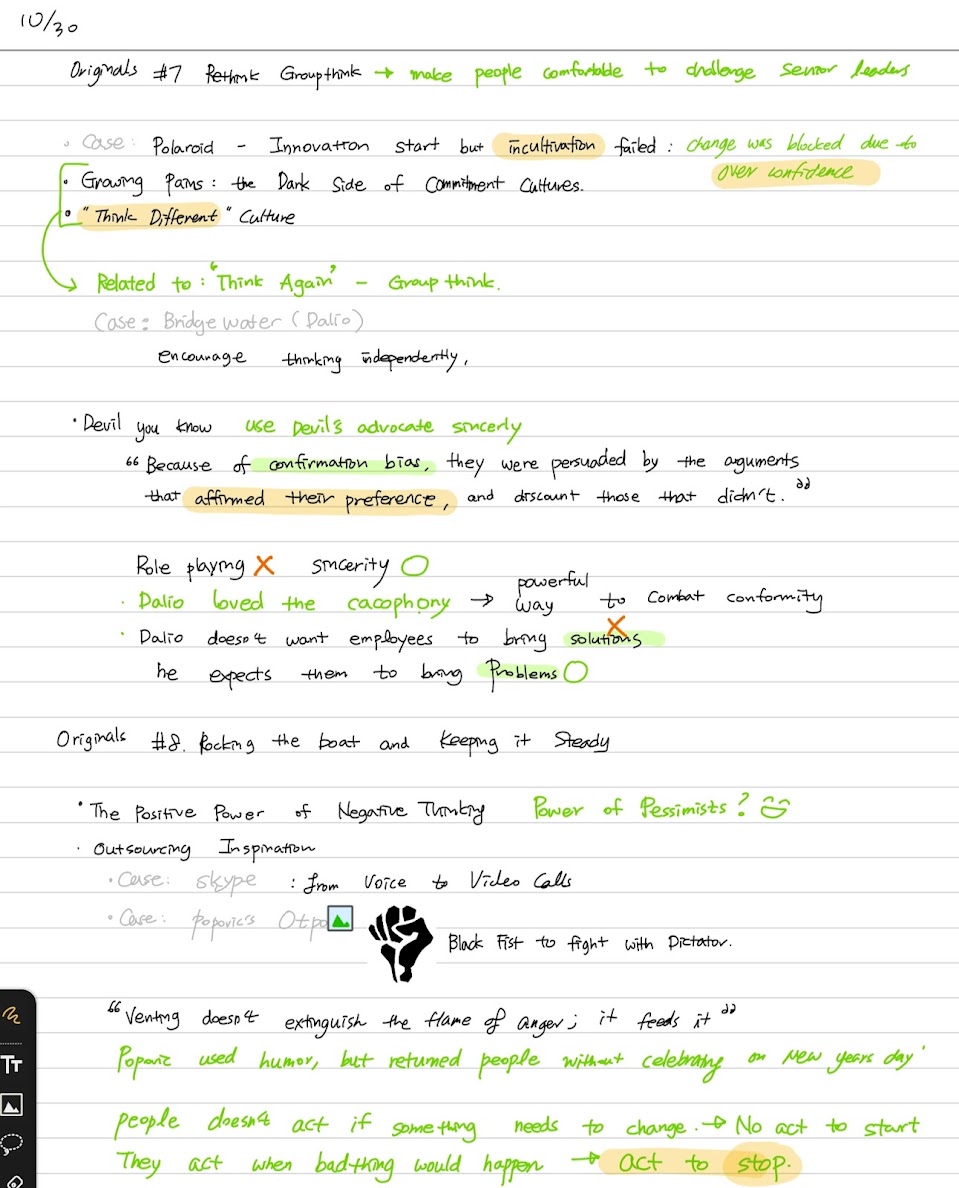 10/30
Originals #7 Rethink Groupthink → make people comfortable to challenge senior leaders
Case: Polaroid - Innovation start but incultivation failed : change was blocked due to
over confidence
• Growing Pains : the Dark Side of Commitment Cultures.
• "Think Different" Culture
Related to : "Think Again" - Group think.
Case: Bridgewater (Dalio)
encourage thinking independently,
• Devil you know use Devil's advocate sincerly
"Because of confirmation bias, they were persuaded by the arguments
that affirmed their preference, and discount those that didn't."
Role playing X sincerity O
• Dalio loved the cacophony → powerful way to combat conformity
• Dalio doesn't want employees to bring solutions X
he expects them to bring Problems O
Originals #8. Rocking the boat and Keeping it Steady
• The Positive Power of Negative Thinking Power of Pessimists?
• Outsourcing Inspiration
• Case: skype : from Voice to Video Calls
• Case: popovic's Otpo
Black Fist to fight with Dictator.
"Venting doesn't extinguish the flame of anger; it feeds it"
Popovic used humor, but returned people without celebrating on New years day
people doesn't act if something needs to change. → No act to start
They act when badthing would happen → act to stop.
TT